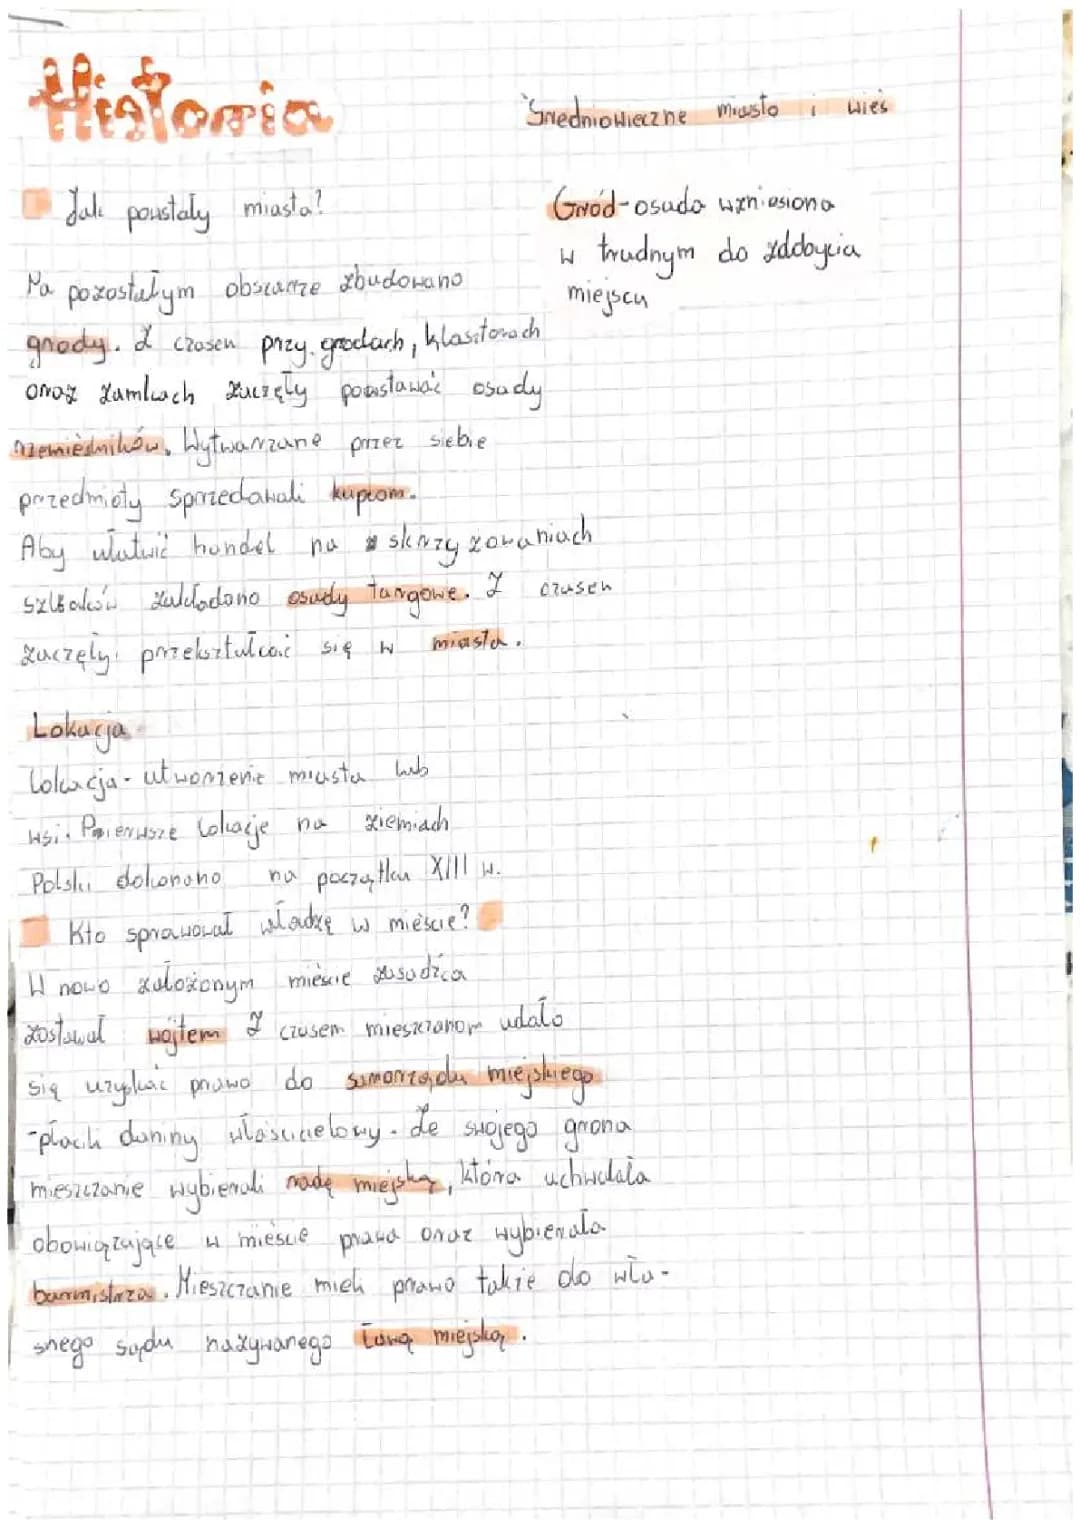 Historia
Średniowieczne miasto i wieś
Jak powstały miasta?
Gród-osada wzniesiona
w trudnym do zddobycia
miejscu
Na pozostałym obszarze zbudowano
grody. Z czasem przy grodach, klasztorach
oraz zamkach zaczęły powstawać osady
rzemieślników. Wytwarzane przez siebie
przedmioty sprzedawali kupcom.
Aby ułatwić handel na skrzyżowaniach
szlaków zakładano osady targowe. Z czasem
zaczęły przekształcać się w miasta.
Lokacja
Lokacja - utworzenie miasta lub
wsi. Pierwsze lokacje na ziemiach
Polski dokonano na początku XIII w.
Kto sprawował władzę w mieście?
W nowo założonym mieście zasadźca
zostawał wójtem Z czasem mieszczanom udało
się uzyskać prawo do samorządu miejskiego
-płacili daniny właścicielowy. Ze swojego grona
mieszczanie wybierali radę miejską, która uchwalała
obowiązujące w mieście prawa oraz wybierała
burmistrza. Mieszczanie mieli prawo także do wła-
snego sądu nazywanego ławą miejską.